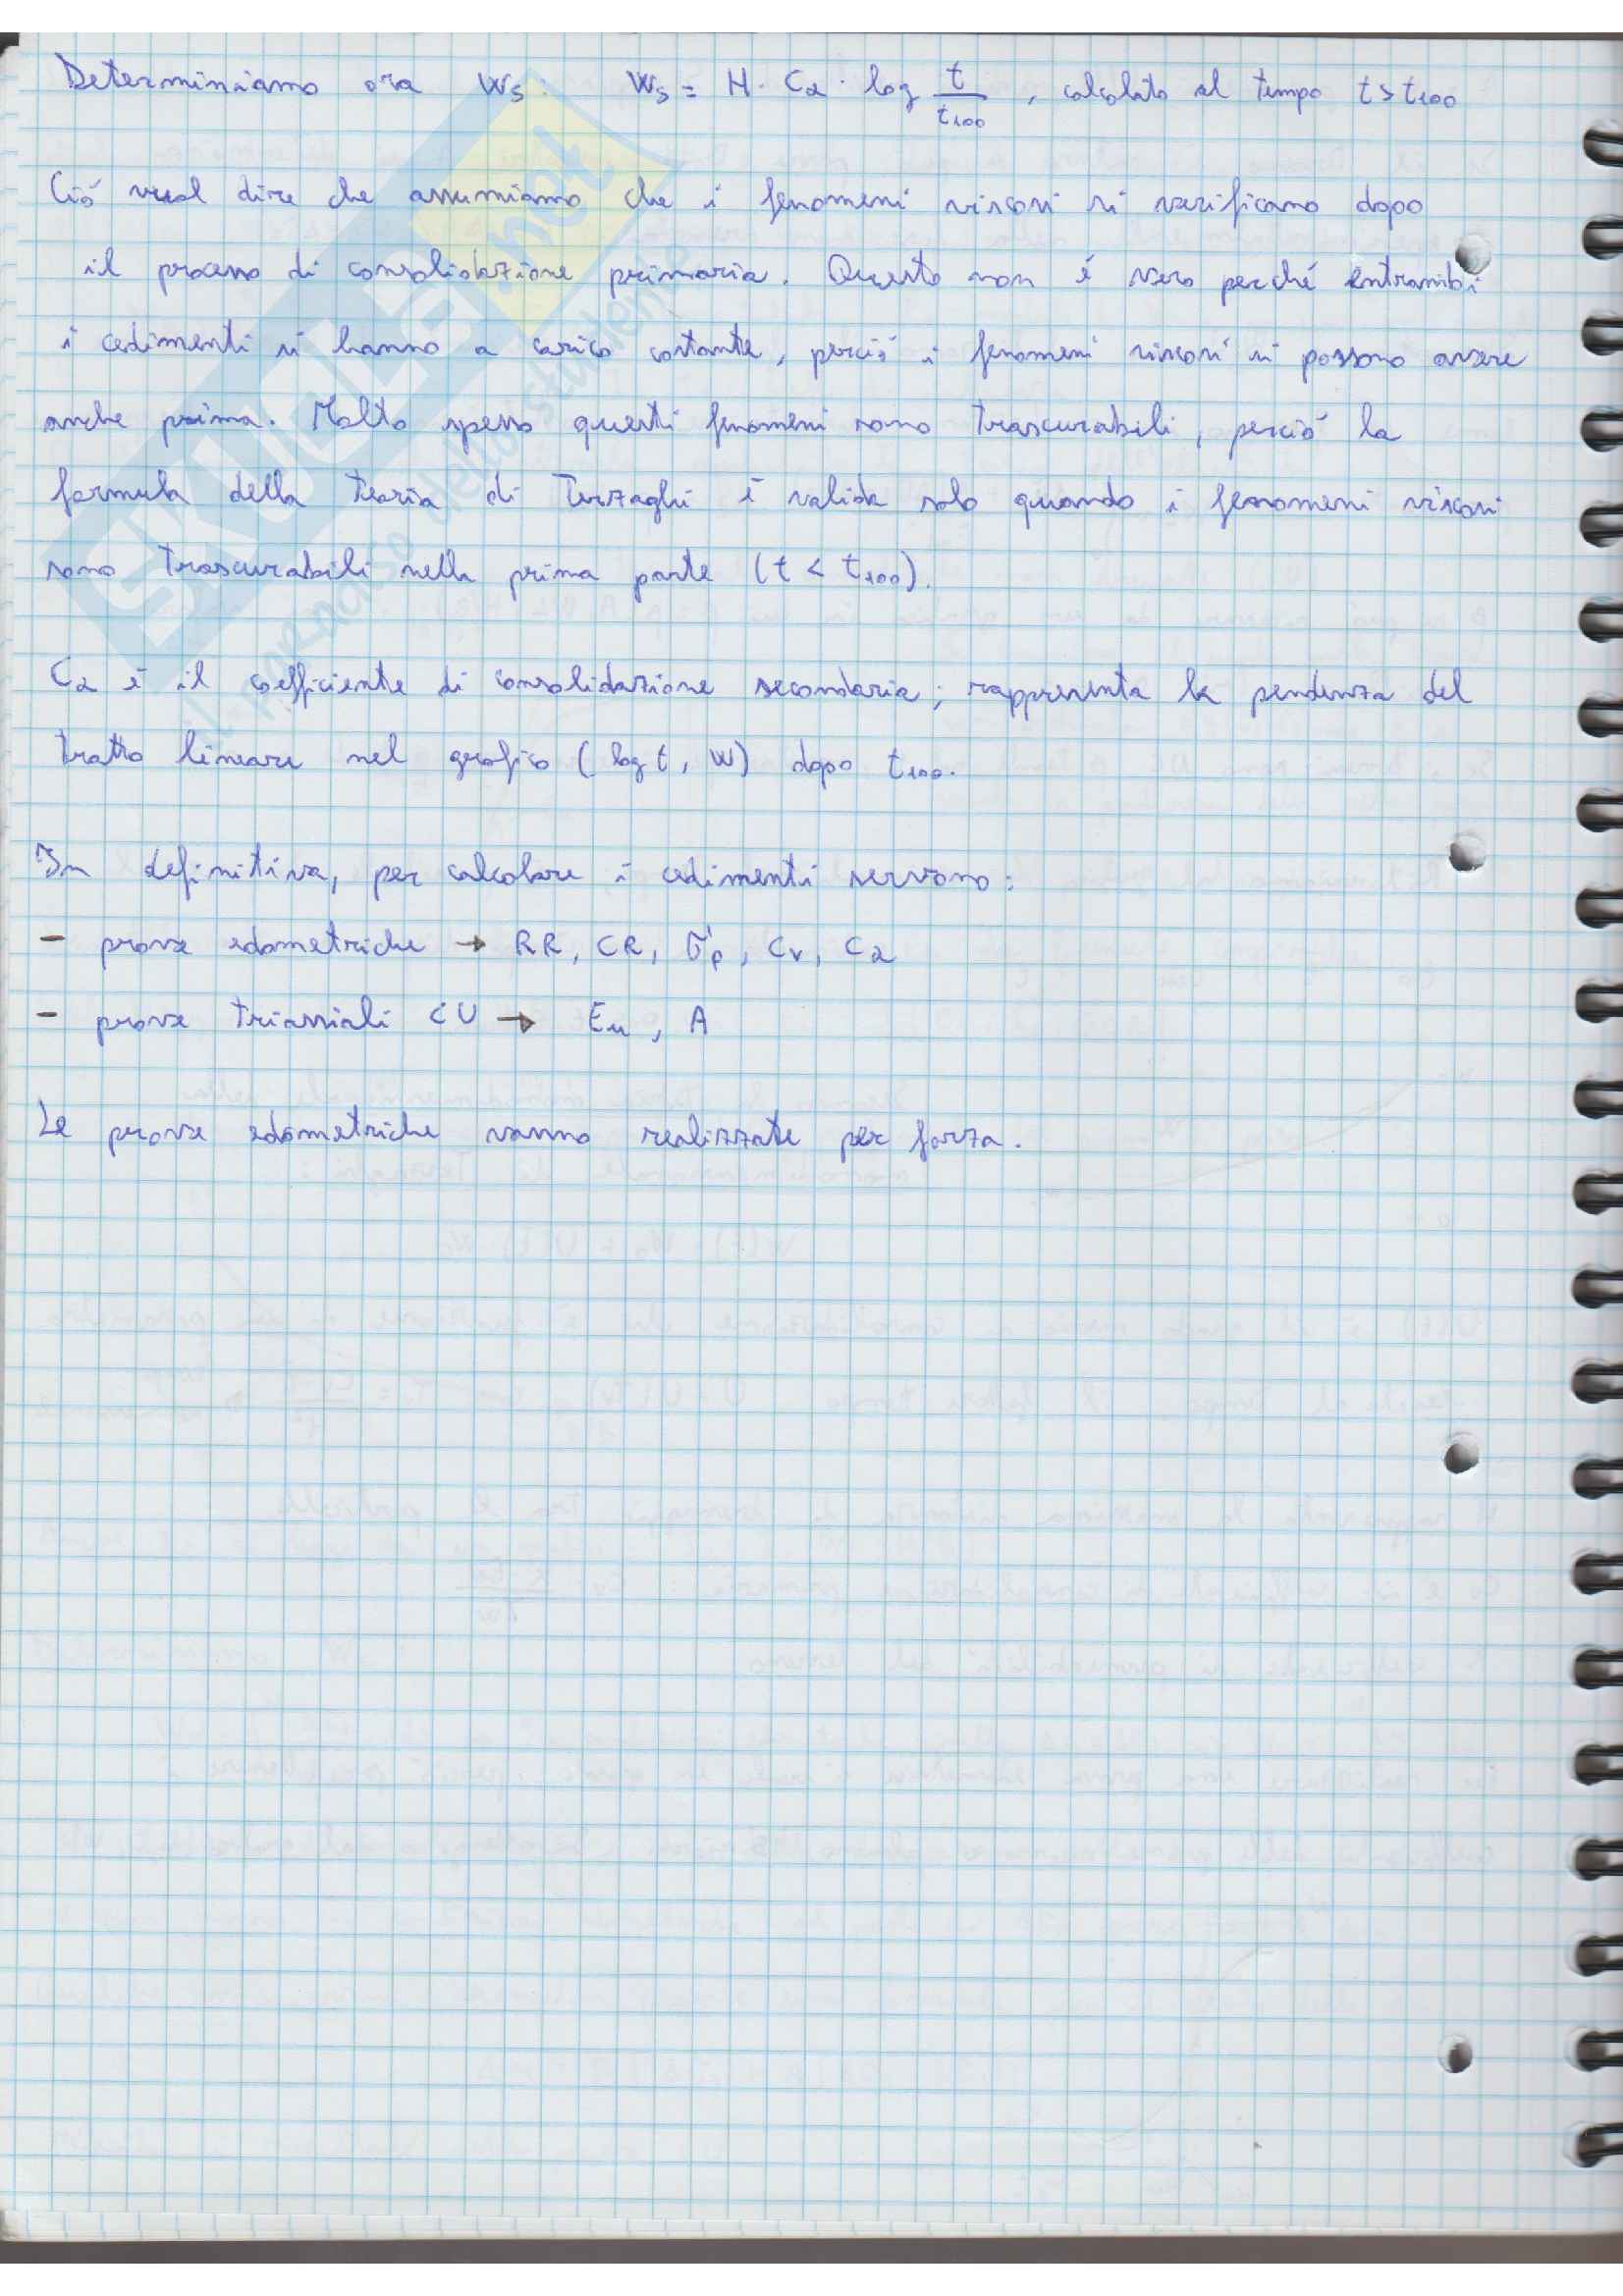 Determiniamo ora Ws: Ws = H · Cα · log t/t100 , calcolato al tempo t > t100
Ciò vuol dire che assumiamo che i fenomeni viscosi si verificano dopo
il processo di consolidazione primaria. Questo non è vero perché entrambi
i cedimenti si hanno a carico costante, perciò i fenomeni viscosi si possono avere
anche prima. Molto spesso questi fenomeni sono trascurabili, perciò la
formula della teoria di Terzaghi è valida solo quando i fenomeni viscosi
sono trascurabili nella prima parte (t < t100).
Cα è il coefficiente di consolidazione secondaria; rappresenta la pendenza del
tratto lineare nel grafico (log t, W) dopo t100.
In definitiva, per calcolare i cedimenti servono:
- prove edometriche → RR, CR, σ'p, Cv, Cα
- prove triassiali CU → Eu, A
Le prove edometriche vanno realizzate per forza.
SKUOLA.net
il paradiso dello studente